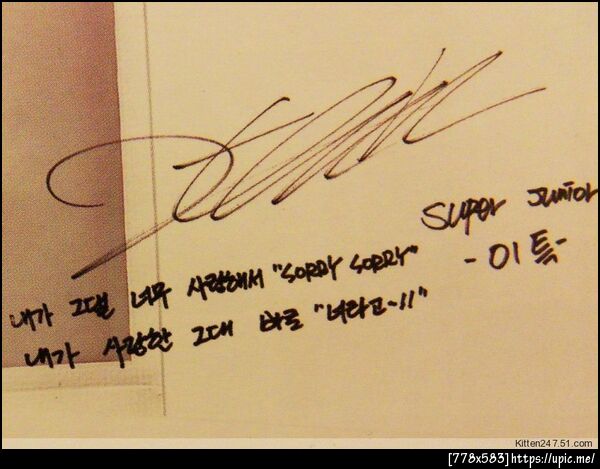 Super Junior
-이특-
내가 그댈 너무 사랑해서 "SORRY SORRY"
내가 사랑한 그대 바로 "너라고~!!"
Kitten247.51.com
[778x583]https://upic.me/